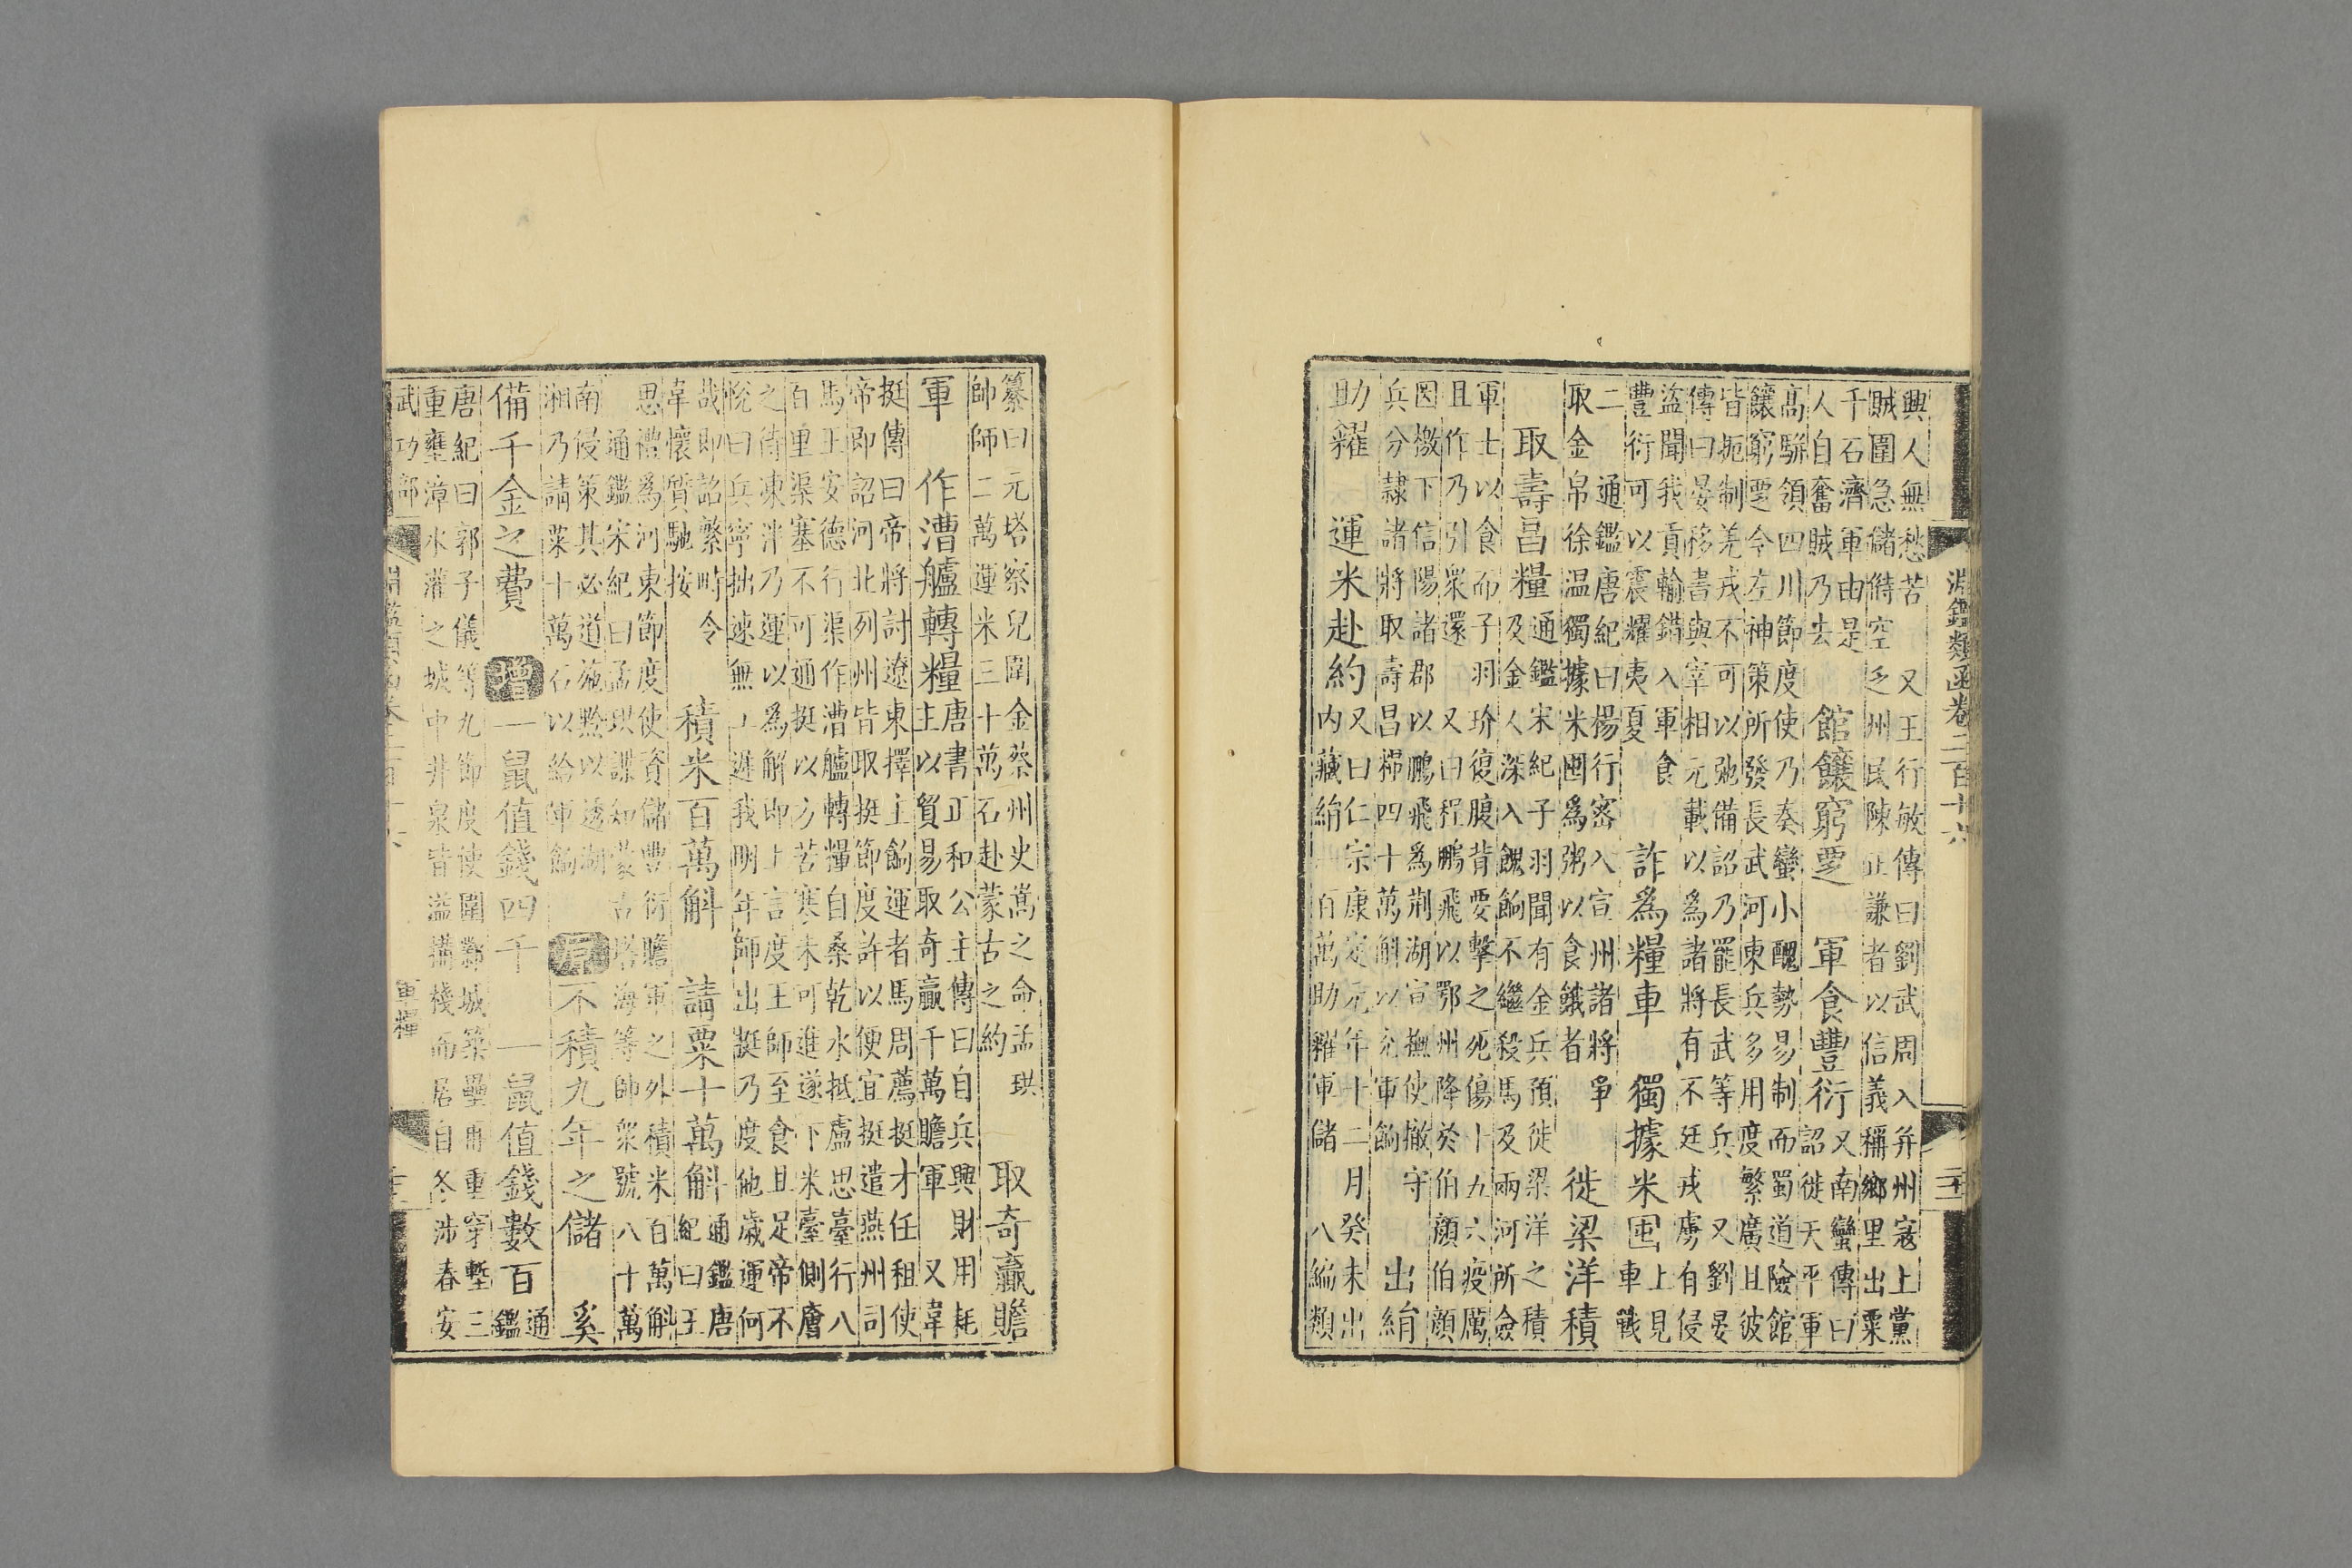 淵鑑類函卷二百十六
興人無愁苦 又王行敏傳曰劉武周入并州寇上黨
賊圍急儲偫空乏州民陳正謙者以信義稱鄉里出粟
千石濟軍由是
人自奮賊乃去
館饟窮覂 軍食豐衍
又南蠻傳曰
詔徙天平軍
高駢領四川節度使乃奏蠻小醜勢易制而蜀道險館
饟窮覂今左神策所發長武河東兵多用度繁廣且彼
皆扼制羌戎不可以弛備詔乃罷長武等兵 又劉晏
傳曰晏移書與宰相元載以為諸將有不廷戎虜有侵
盜聞我貢輸錯入軍食
豐衍可以震耀夷夏
詐為糧車 獨據米囤
上見
車戰
二 通鑑唐紀曰楊行密入宣州諸將爭
取金帛徐温獨據米囤為粥以食餓者
徙梁洋積
取壽昌糧
通鑑宋紀子羽聞有金兵預徙梁洋之積
及金人深入餽餉不繼殺馬及兩河所僉
軍士以食而子羽玠復腹背要擊之死傷十九六疫厲
且作乃引衆還 又曰程鵬飛以鄂州降於伯顏伯顏
因檄下信陽諸郡以鵬飛為荆湖宣撫使撤守
兵分隷諸將取壽昌糧四十萬斛以充軍餉
出絹
助糴 運米赴約
又曰仁宗康定元年十二月癸未出
内藏絹一百萬助糴軍儲 八編類
纂曰元塔察兒圍金蔡州史嵩之命孟珙
帥師二萬運米三十萬石赴蒙古之約
取奇贏贍
軍 作漕艫轉糧
唐書正和公主傳曰自兵興財用耗
主以貿易取奇贏千萬贍軍 又韋
挺傳曰帝將討遼東擇主餉運者馬周薦挺才任租使
帝即詔河北列州皆取挺節度許以便宜挺遣燕州司
馬王安德行渠作漕艫轉糧自桑乾水抵盧思臺行八
百里渠塞不可通挺以方苦寒未可進遂下米臺側廥
之待凍泮乃運以為解即上言度王師至食且足帝不
悅曰兵寧拙速無工遲我明年師出挺乃度他歲運何
哉即詔繁畤令
韋懷質馳按
積米百萬斛 請粟十萬斛
通鑑唐
紀曰王
思禮為河東節度使資儲豐衍贍軍之外積米百萬斛
通鑑宋紀曰孟珙諜知蒙古塔海等帥衆號八十萬
南侵策其必道施黔以透湖
湘乃請粟十萬石以給軍餉
原 不積九年之儲 奚
備千金之費 增 一鼠值錢四千 一鼠值錢數百
通
鑑
唐紀曰郭子儀等九節度使圍鄴城築壘再重穿塹三
重壅漳水灌之城中井泉皆溢構棧而居自冬涉春安
武功部
軍糧